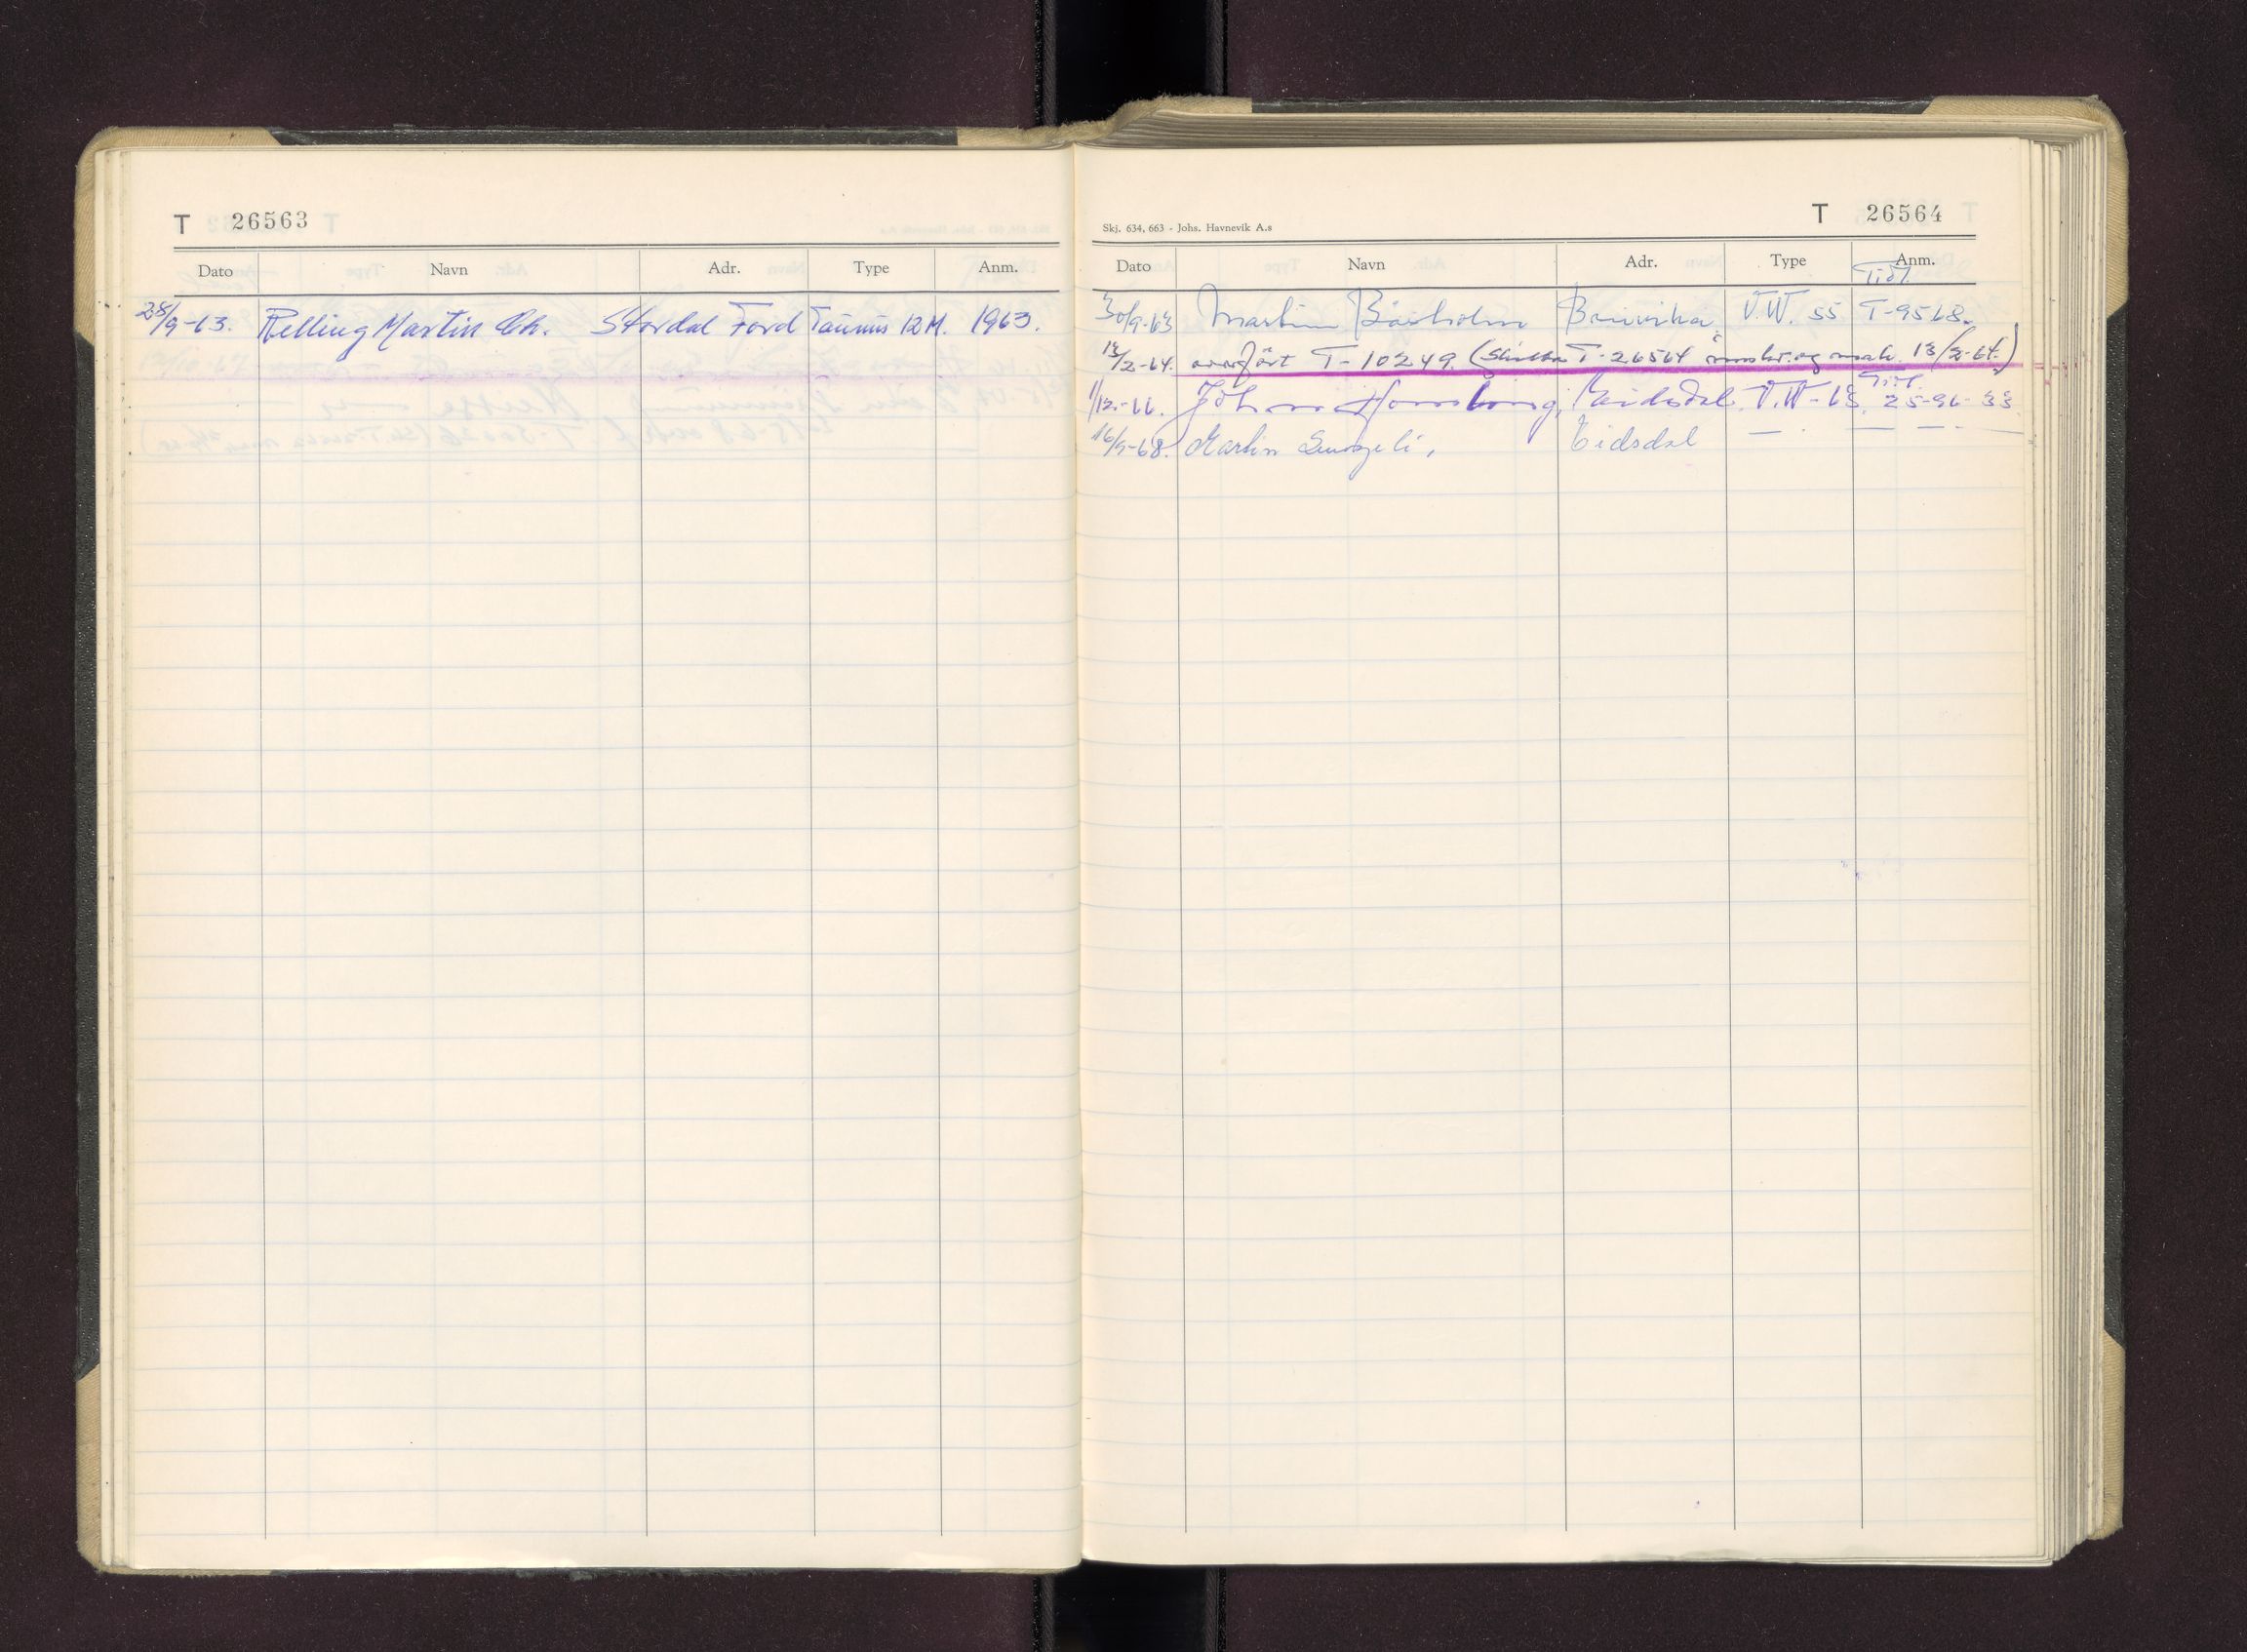 T 26563
Dato Navn Adr. Type Anm.
28/9-63. Relling Martin Ch. Stordal Ford Taunus 12M. 1963.
Skj. 634, 663 - Johs. Havnevik A.s
T 26564
Dato Navn Adr. Type Anm.
Tidl.
30/9-63 Martin V.W. 55 T-9568.
13/2-64. overført T-10249. (Skilter T-26564 omskr. og mak. 13/2-64.)
Tidl.
1/12-66. Johan V.W-63. 25-96-33
16/9-68. Martin Eidsdal — — — —